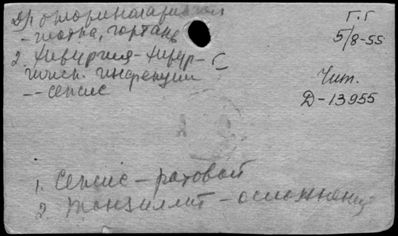 Др оториноларингол
– глотка, гортань
2. Хирургия – хирур-
гическ. инфекции
– – сепсис
Г.Г
5/8-55
Чит.
Д-13955
1. Сепсис – ротовой
2. Тонзиллит – осложнения